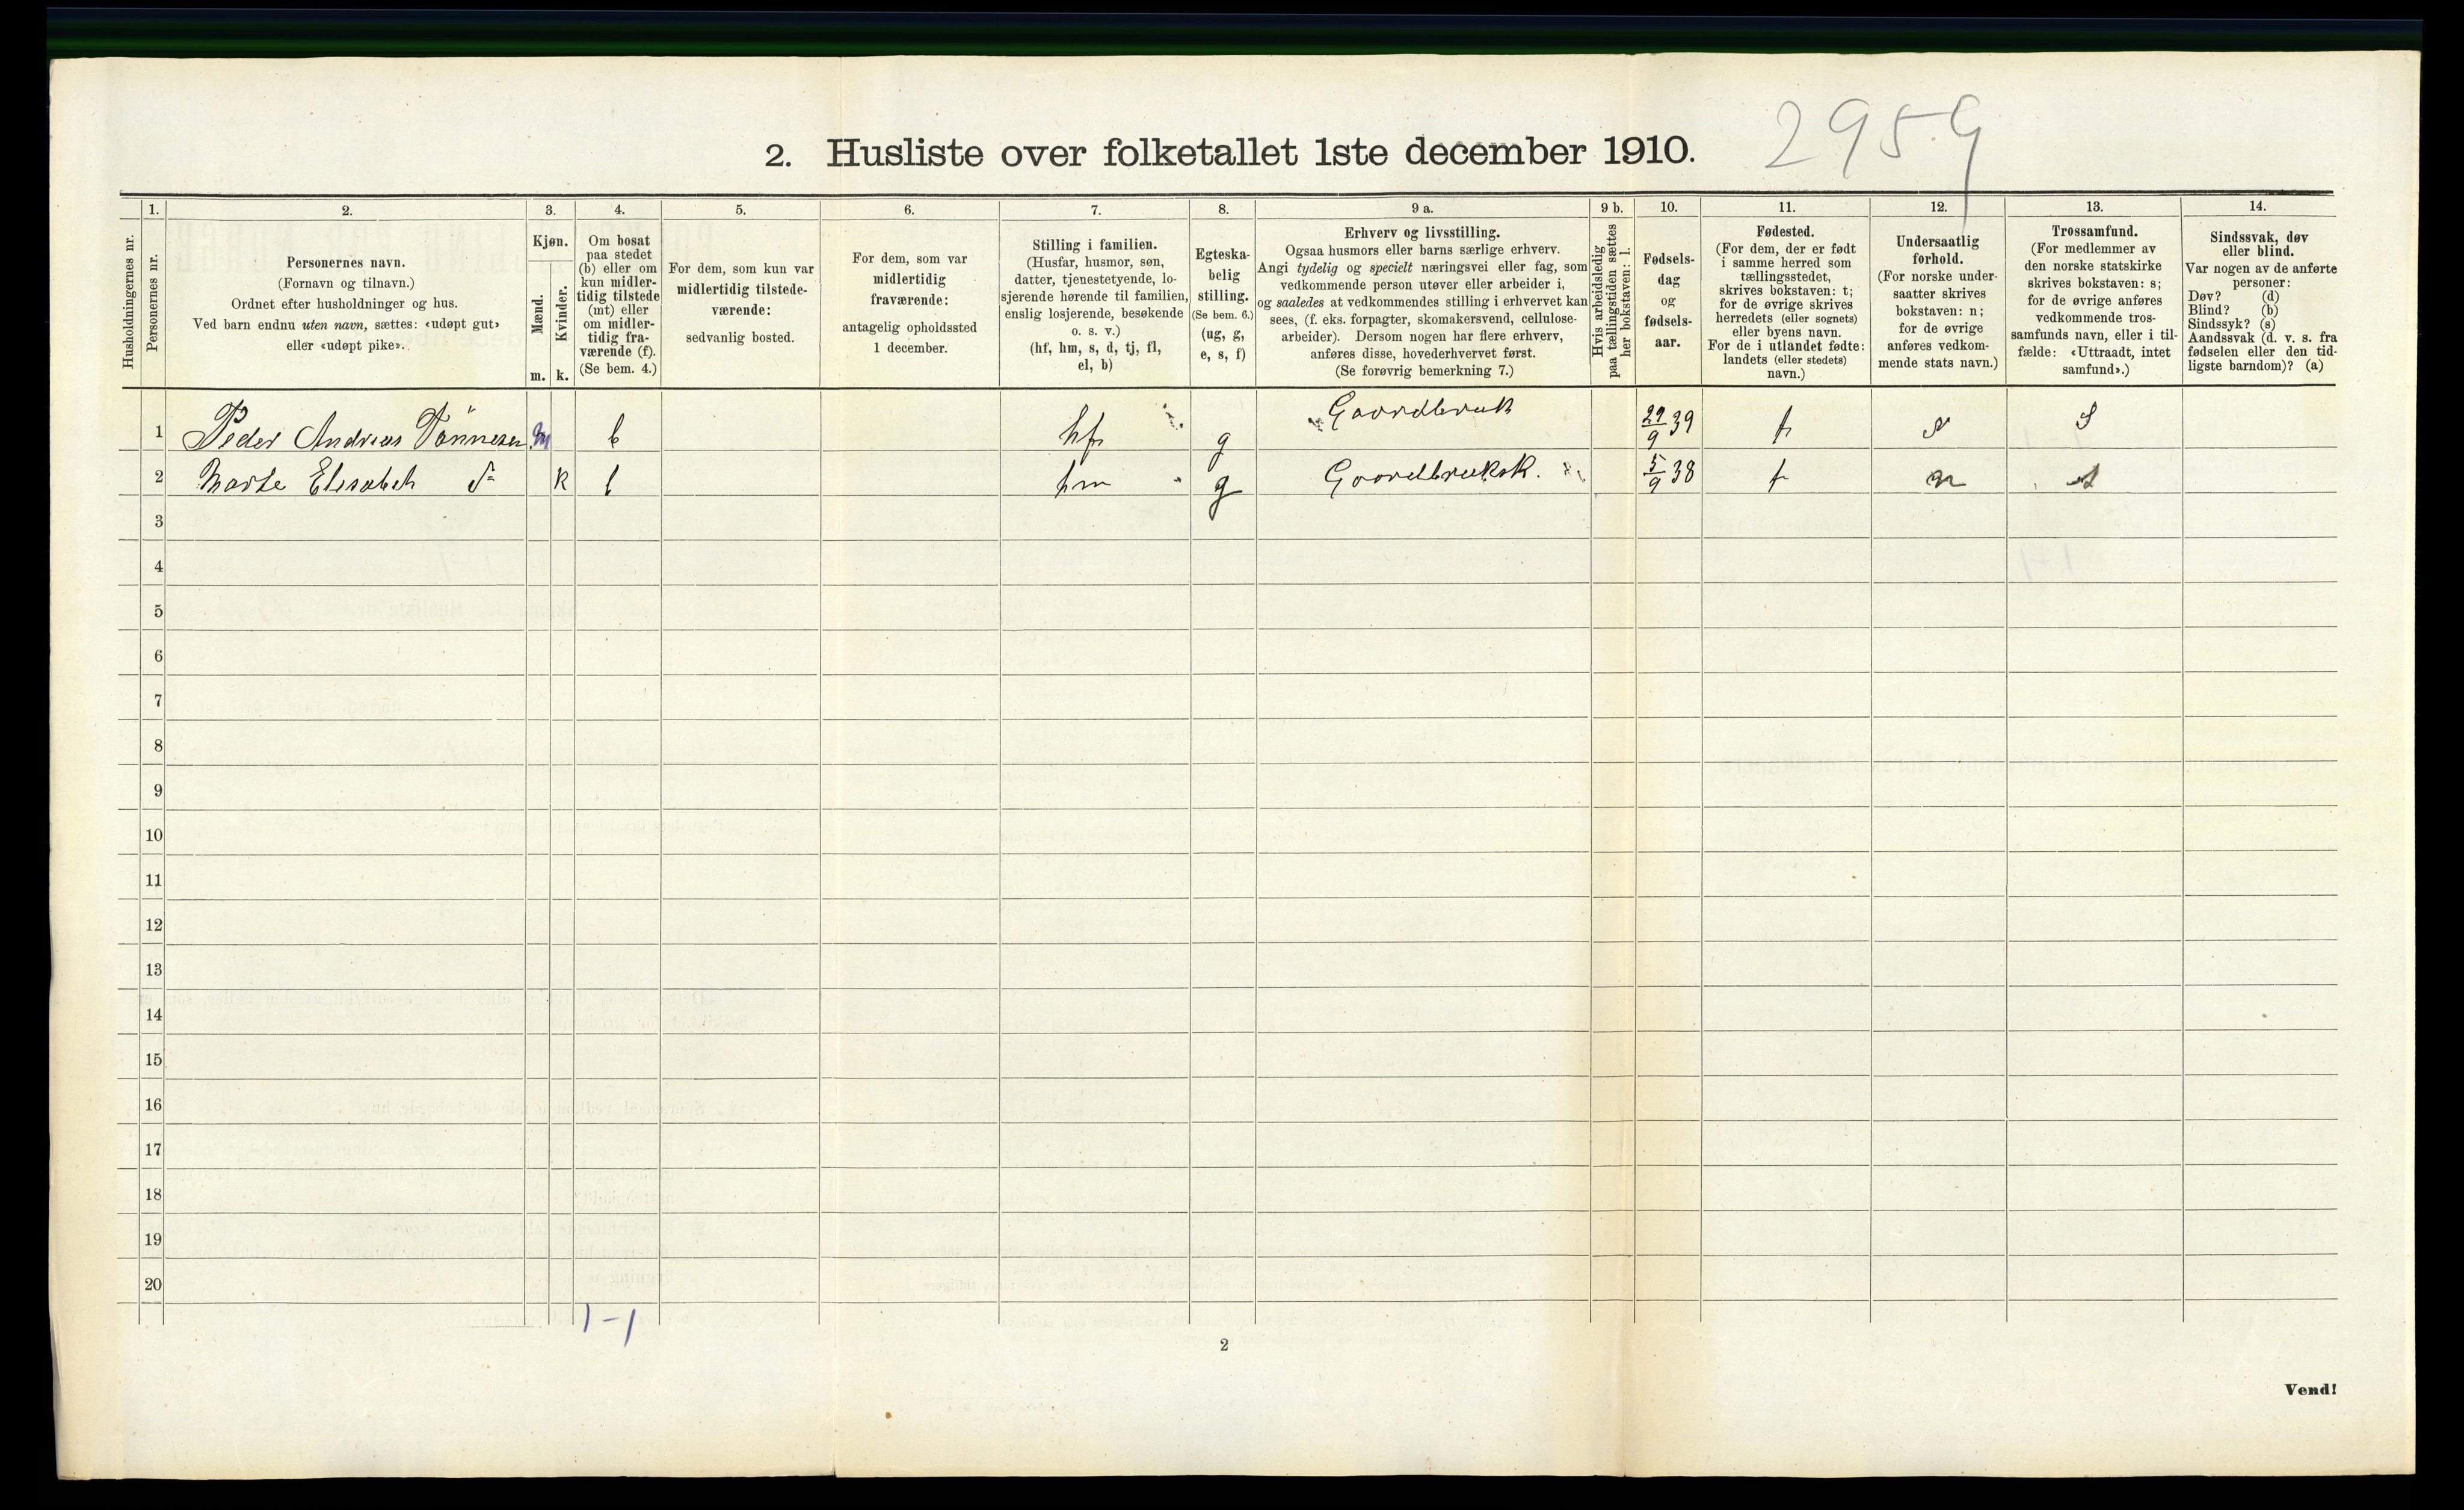 2959
2. Husliste over folketallet 1ste december 1910.
Husholdningernes nr.
1.
Personernes nr.
2.
Personernes navn.
(Fornavn og tilnavn.)
Ordnet efter husholdninger og hus.
Ved barn endnu uten navn, sættes: «udøpt gut»
eller «udøpt pike».
3.
Kjøn.
Mænd.
Kvinder.
m. k.
4.
Om bosat
paa stedet
(b) eller om
kun midler-
tidig tilstede
(mt) eller
om midler-
tidig fra-
værende (f).
(Se bem. 4.)
5.
For dem, som kun var
midlertidig tilstede-
værende:
sedvanlig bosted.
6.
For dem, som var
midlertidig
fraværende:
antagelig opholdssted
1 december.
7.
Stilling i familien.
(Husfar, husmor, søn,
datter, tjenestetyende, lo-
sjerende hørende til familien,
enslig losjerende, besøkende
o. s. v.)
(hf, hm, s, d, tj, fl,
el, b)
8.
Egteska-
belig
stilling.
(Se bem. 6.)
(ug, g,
e, s, f)
9 a.
Erhverv og livsstilling.
Ogsaa husmors eller barns særlige erhverv.
Angi tydelig og specielt næringsvei eller fag, som
vedkommende person utøver eller arbeider i,
og saaledes at vedkommendes stilling i erhvervet kan
sees, (f. eks. forpagter, skomakersvend, cellulose-
arbeider). Dersom nogen har flere erhverv,
anføres disse, hovederhvervet først.
(Se forøvrig bemerkning 7.)
9 b.
Hvis arbeidsledig
paa tællingstiden sættes
her bokstaven: l.
10.
Fødsels-
dag
og
fødsels-
aar.
11.
Fødested.
(For dem, der er født
i samme herred som
tællingsstedet,
skrives bokstaven: t;
for de øvrige skrives
herredets (eller sognets)
eller byens navn.
For de i utlandet fødte:
landets (eller stedets)
navn.)
12.
Undersaatlig
forhold.
(For norske under-
saatter skrives
bokstaven: n;
for de øvrige
anføres vedkom-
mende stats navn.)
13.
Trossamfund.
(For medlemmer av
den norske statskirke
skrives bokstaven: s;
for de øvrige anføres
vedkommende tros-
samfunds navn, eller i til-
fælde: «Uttraadt, intet
samfund».)
14.
Sindssvak, døv
eller blind.
Var nogen av de anførte
personer:
Døv? (d)
Blind? (b)
Sindssyk? (s)
Aandssvak (d. v. s. fra
fødselen eller den tid-
ligste barndom)? (a)
1 Peder Andreas Tönnesen m b hf g Gaardbruk 29/9 39 t n S
2 Marte Elisabeth k b hm g Gaardbruksk. 5/9 38 t n s
3
4
5
6
7
8
9
10
11
12
13
14
15
16
17
18
19
20
1-1
2
Vend!